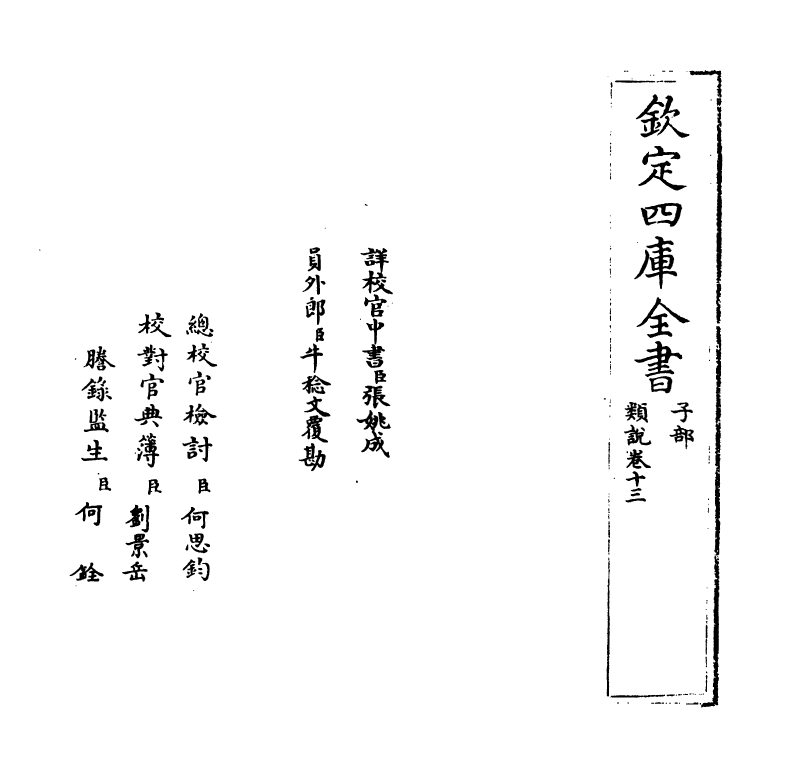 欽定四庫全書
子部
類說卷十三
詳校官中書臣張姚成
員外郎臣牛稔文覆勘
總校官檢討臣何思鈞
校對官典簿臣劉景岳
謄錄監生臣何銓